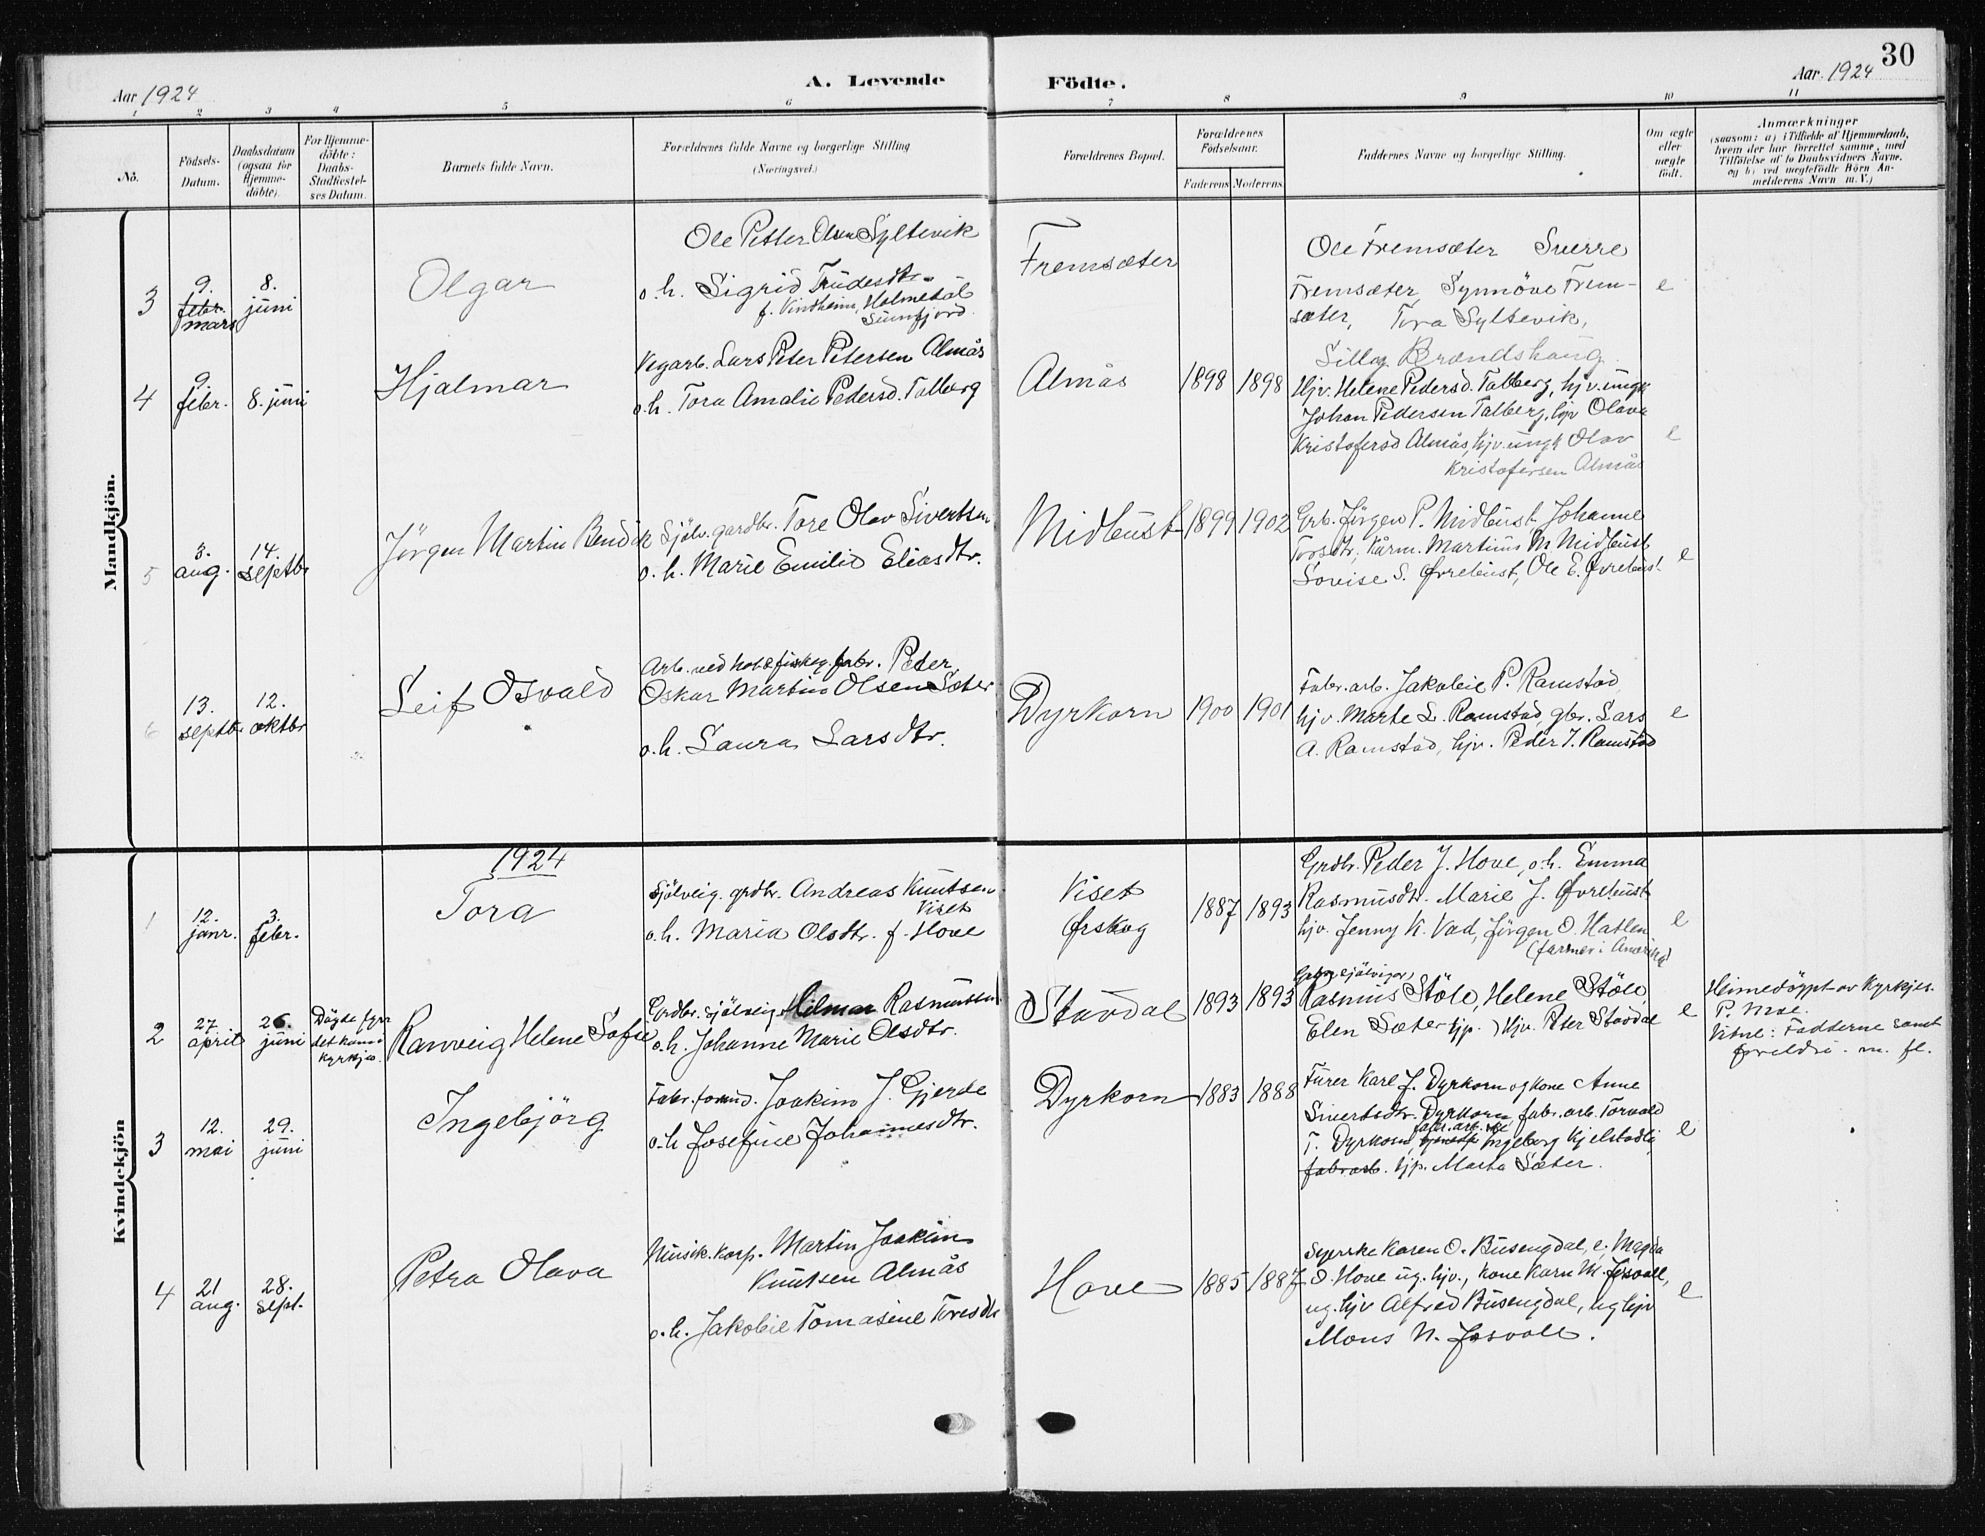 30
Aar 1924
A. Levende
Födte.
Aar 1924
1 2 3 4 5 6 7 8 9 10 11
No.
Födsels-
Datum.
Daabsdatum
(ogsaa for
Hjemme-
döbte).
For Hjemme-
döbte:
Daabs-
Stadfæstel-
ses Datum.
Barnets fulde Navn.
Forældrenes fulde Navne og borgerlige Stilling
(Næringsvei.)
Forældrenes Bopæl.
Forældrenes
Födselsaar.
Faderens
Moderens
Faddernes Navne og borgerlige Stilling.
Om ægte
eller
uægte
födt.
Anmærkninger
(saasom: a) i Tilfælde af Hjemmedaab,
hvem der har forrettet samme, med
Tilföielse af to Daabsvidners Navne,
og b) ved uægtefödte Börn An-
melderens Navn m. V.)
Mandkjön.
3
9.
febr.
mars
8.
juni
Olgar
Ole Petter Olsen Syltevik
o.h. Sigrid Trudesdtr.
f. Vindheim, Holmedal
Sunnfjord.
Fremsæter
Ole Fremsæter Sverre
Fremsæter, Synnöve Frem-
sæter, Tora Syltevik,
Brandshaug
e
4
9.
febr.
8. juni
Hjalmar
Vegarb. Lars Peter Petersen Almås
o.h. Tora Amalie Pedersd. Talberg
Almås
1898
1898
Hjv. Helene Pedersd. Talberg, hjv. ungk
Johan Pedersen Talberg, hjv Olava
Kristofersd Almås, hjv. ungk Olav
Kristofersen Almås
e
5
3.
aug.
14.
septbr
Jörgen Martin Bendik
Sjölv. gardbr. Tore Olav Sivertsen
o.h. Marie Emilie Eliasdtr.
Midtbust
1899
1902
Grb. Jörgen P. Midtbust Johanne
Torsdtr, Kårm. Martinus M Midtbust
Lovise S. Øvrebust, Ole E. Øvrebust.
e
6
13.
septbr
12.
oktbr
Leif Osvald
Arb. ved fabr. Peder
Oskar Martin Olsen Sæter
o.h. Laura Larsdtr.
Dyrkorn
1900
1901
Fabr. arb. Jakobie P. Ramstad,
hjv. Marte L. Ramstad, gbr. Lars
A. Ramstad, hjv. Peder J. Ramstad
e
Kvindekjön
1924
1
12.
janr.
3.
febr.
Tora
Sjölveig. grdbr. Andreas Knutsen
Viset
o.h. Maria Olsdtr. f. Hove
Viset
Ørskog
1887
1893
Grdbr. Peder J. Hove, o.h. Emma
Rasmusdtr. Marie J. Øvrebust
hjv. Jenny K. Vad, Jörgen O. Hatlen
(farmer i Amerika)
e
2
27.
april
26.
juni
Döyde fyrr
det kom i
kyrkja.
Ranveig Helene Sofie
Grdbr. sjölveig. Hilmar Rasmussen
o.h. Johanne Marie Olsdtr.
Stavdal
1893
1893
Rasmus Stöle, Helene Stöle,
Elen Sæter hjp. hjv. Peter Stavdal
e
Heimedöypt av Kyrkjes.
P. Moe.
Vitne: Fadderne samt
foreldre. m. fl.
3
12.
mai
29.
juni
Ingebjörg
Fabr. formd. Joakim J. Gjerde
o.h Josefine Johannesdtr.
Dyrkorn
1883
1888
Furer Karl J. Dyrkorn og kone Anne
Sivertsdtr. Dyrkorn fabr. arb. Torvald
T. Dyrkorn, Ingeborg Kjelstadli
fabr arb. hjp. Marta Sæter.
e
4
21
aug.
28.
sept.
Petra Olava
Musik. korp. Martin Joakim
Knutsen Almås
o.h. Jakobie Tomasine Toresdtr
Hove
1885
1887
Syerske Karen O. Busengdal, e. Magda
O. Hove ug. hjv., kone Karn M.
ug. hjv Alfred Busengdal, ug hjv
Mons N.
e